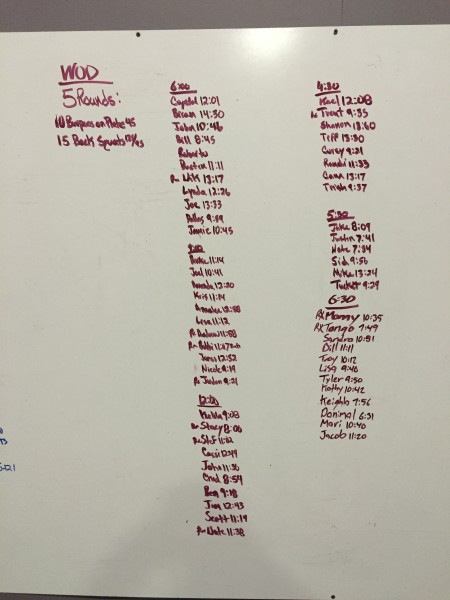 WOD
5 Rounds:
10 Burpees on Plate 45
15 Back Squats
6:00
12:01
Brian 14:30
John 10:46
Bill 8:45
Dustin 11:11
13:17
Lynda 12:26
Joe 13:33
Dallas 9:59
Jamie 10:45
11:14
Joel 10:41
Amanda 12:20
Kris 11:14
Annalee 12:58
Lisa 11:12
11:58
Bobbi 11:17
James 12:52
Nicole 9:19
9:21
12:00
9:08
Rx Stacy 8:06
Rx Stef 11:02
Cassi 12:49
John 11:36
Chad 8:54
Ben 9:18
Jim 12:43
Scott 11:19
Rx Nate 11:38
4:30
12:08
Rx Trent 9:35
Shannon 13:60
Tiff 13:30
Corey 9:21
Randi 11:33
Cam 13:17
Trish 9:37
5:30
Jake 8:09
Justin 7:41
Nate 7:34
Sid 9:56
Mike 13:24
Tucker 9:29
6:30
Rx Manny 10:35
Rx Tango 7:49
Sandra 10:51
Dill 11:11
Troy 10:12
Lisa 9:46
Tyler 9:50
Kathy 10:42
Keighla 7:56
Donimal 6:31
Mari 10:40
Jacob 11:20